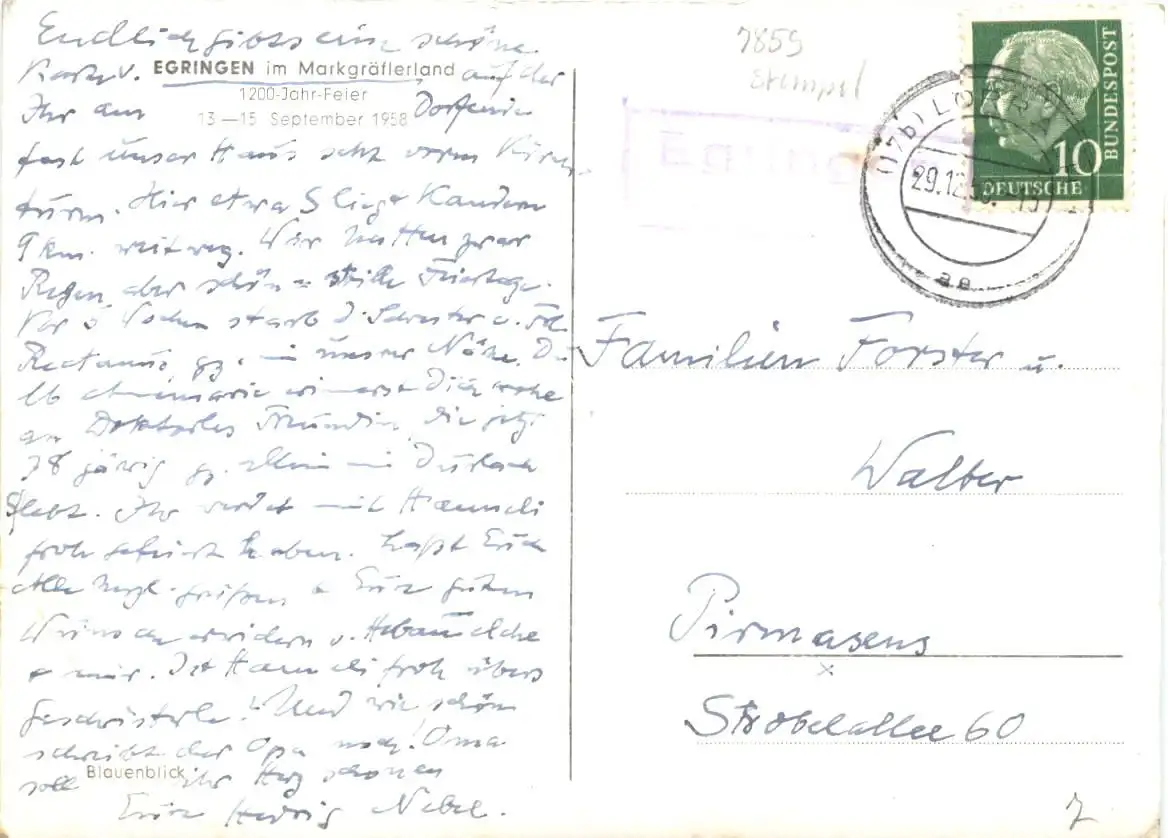 Endlich gibts eine schöne
Karte v. EGRINGEN im Markgräflerland auf der
1200-Jahr-Feier
Ihr am Dorfende
13—15 September 1958
fast unser Haus seht vorm Kirch-
turm. Hier etwa liegt Kandern
9 km. weit weg. Wir hatten zwar
Regen, aber schöne stille Feiertage.
Vor 3 Wochen starb d. Schwester v. Frl.
in unser Nähe. Du
lb. Annemarie erinnerst Dich
an Freundin, die jetzt
78 jährig gz. allein in Durlach
lebt. Ihr werdet mit Hanneli
froh gefeiert haben. Laßt Euch
alle herzl. grüßen & Eure guten
Wünsche erwidern v.
& mir. Ist Hanneli froh übers
Geschwisterle? Und wie schön
schreibt der Opa noch! Oma
soll ihr Herz schonen
Blauenblick
Eure Hedwig Nebel.
7859
Stempel
Egringen
(17b) LÖRRACH
29.12.58.
ae
DEUTSCHE
BUNDESPOST
10
Familien Forster u.
Walter
Pirmasens
x
Strobelallee 60
7